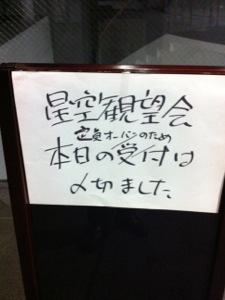 星空観望会
定員オーバーのため
本日の受付は
〆切ました